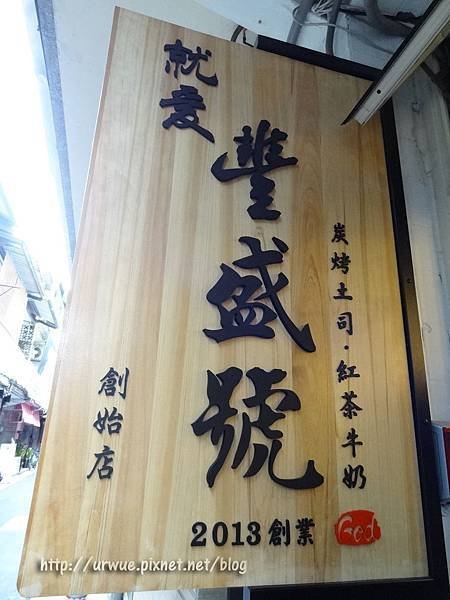 就愛
豐盛號
炭烤土司·紅茶牛奶
創始店
2013創業
Red
http://urwue.pixnet.net/blog